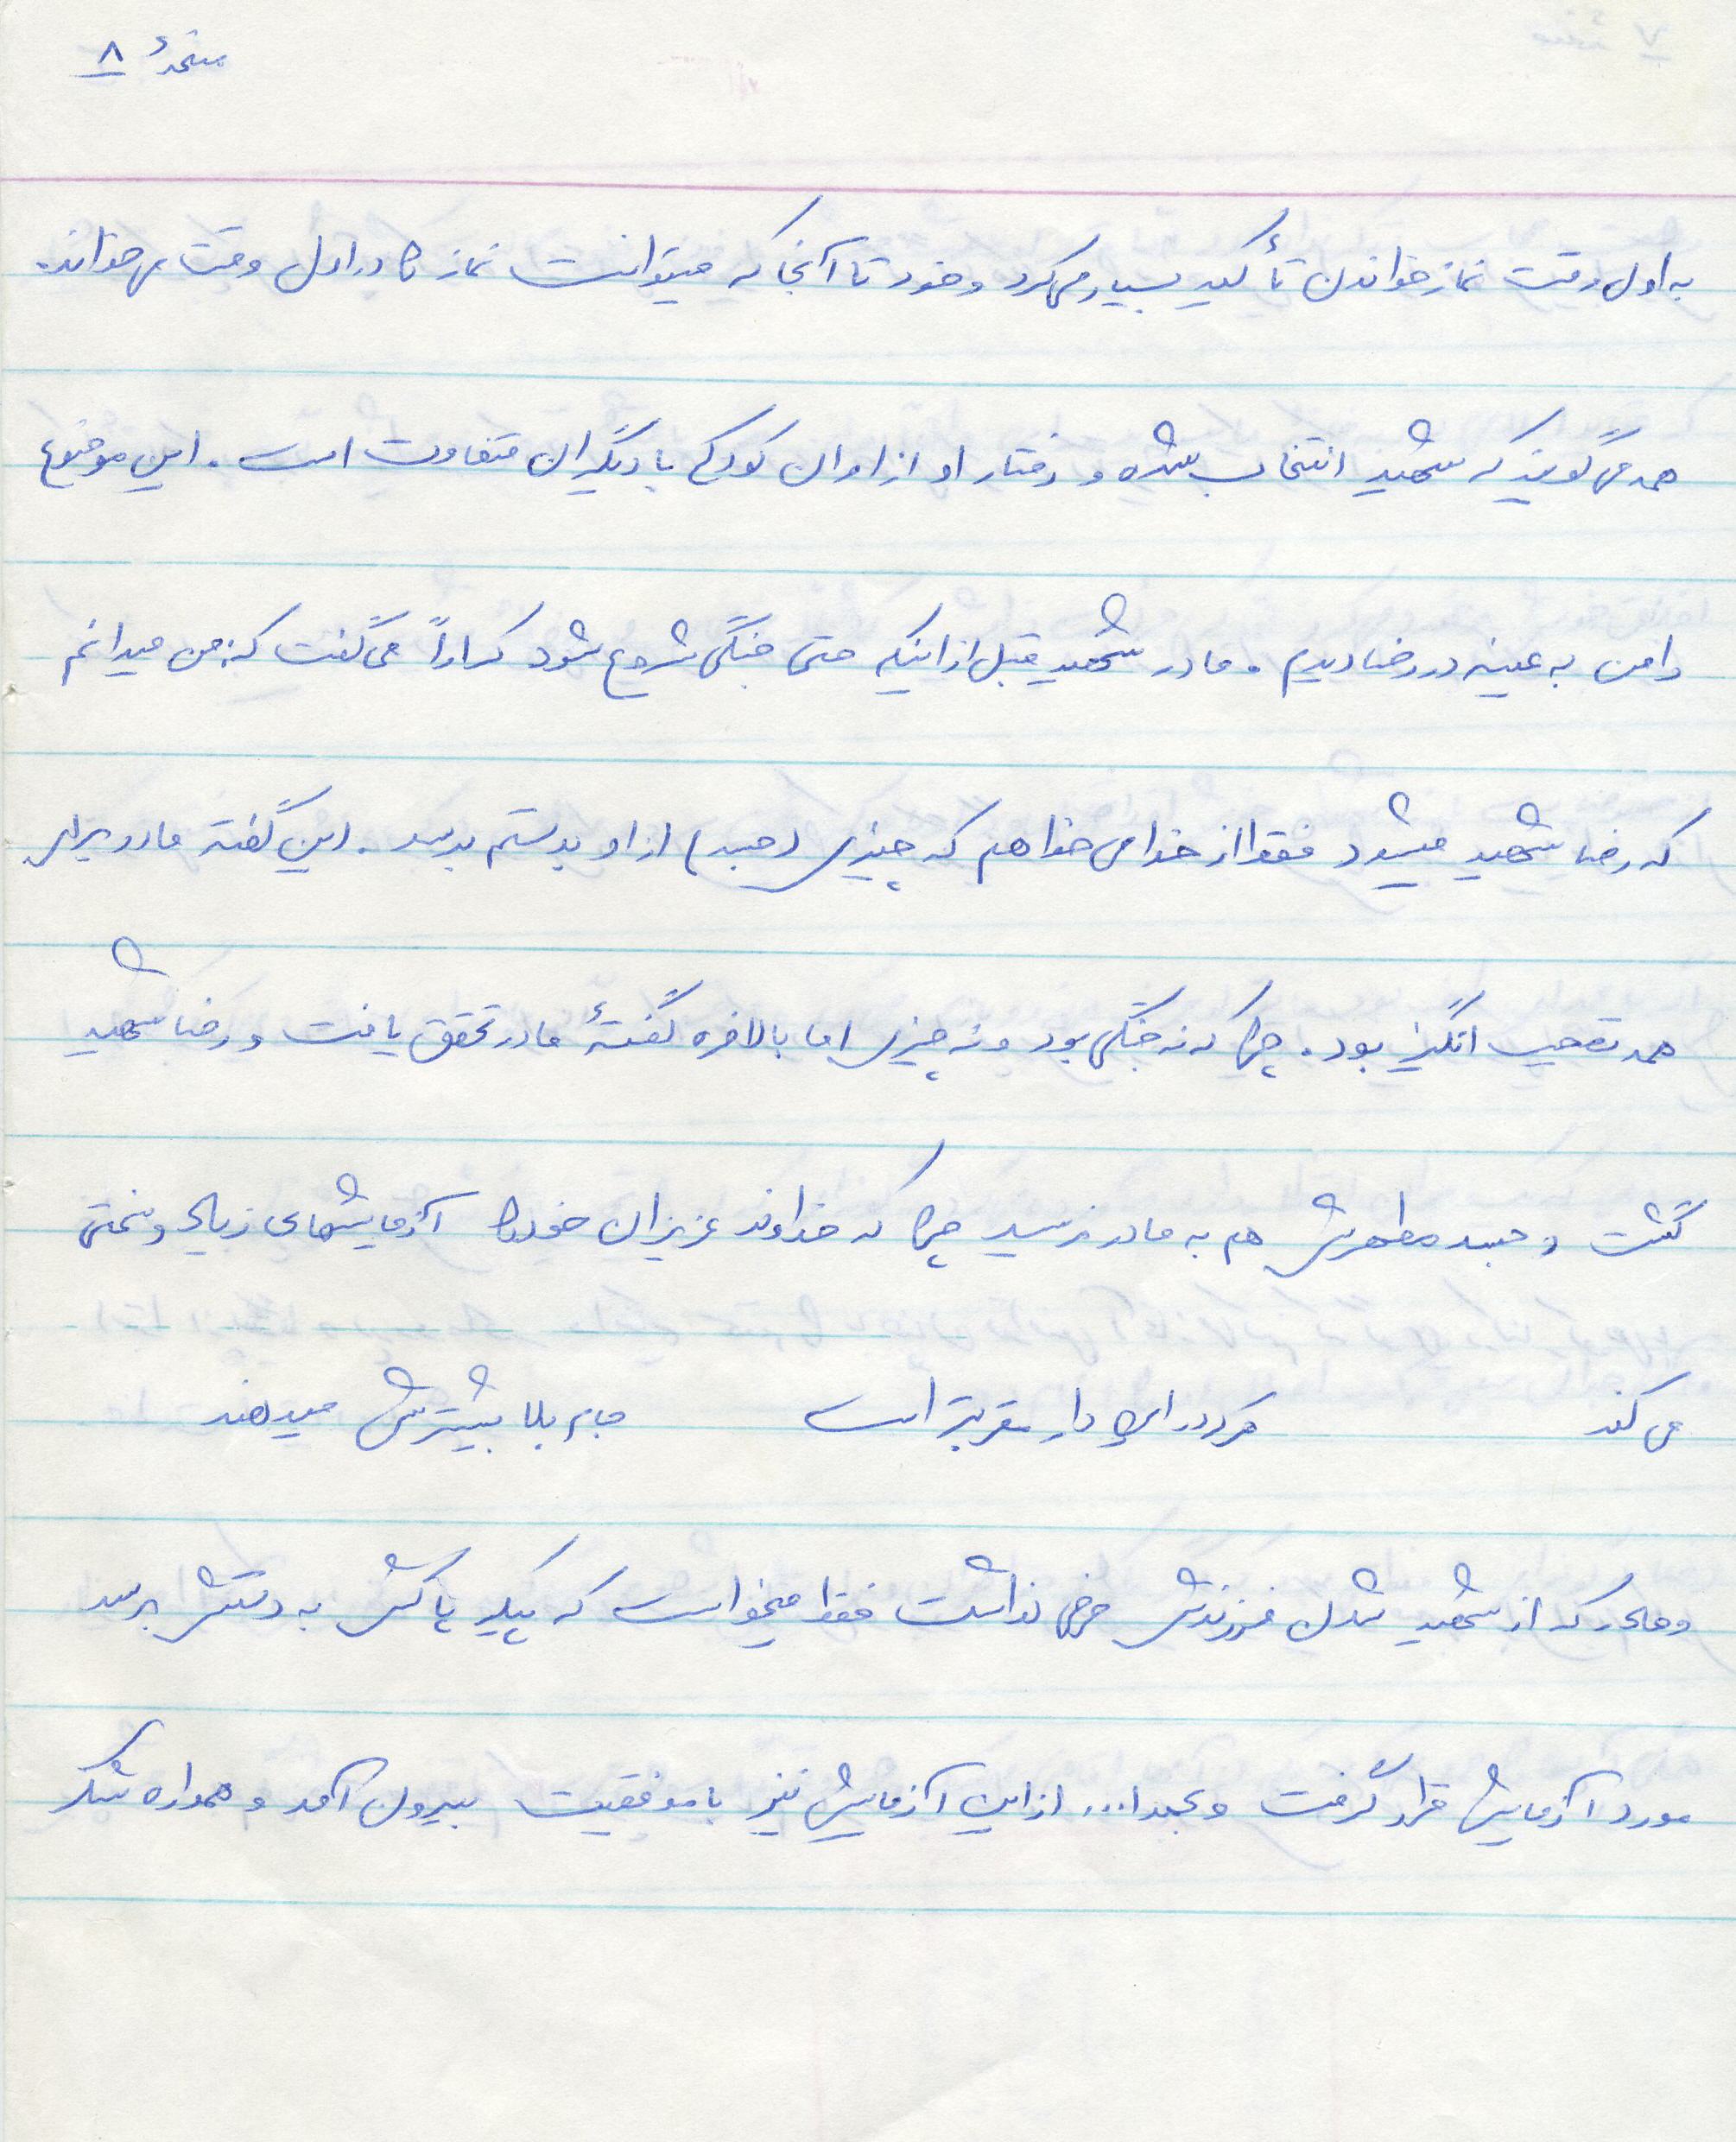 صفحهٔ ۸
به اول وقت نماز خواندن تأکید بسیار میکرد و خود تا آنجا که میتوانست نماز را در اول وقت میخواند.
همه می گویند که شهید انتخاب شده و رفتار او از اوان کودکی با دیگران متفاوت است. این موضوع
را من به عینه در رضا دیدم. مادر شهید قبل از اینکه حتی جنگی شروع شود کراراً می گفت که: من میدانم
که رضا شهید میشود فقط از خدا می خواهم که چیزی (جسد) از او بدستم برسد. این گفته مادر برای
همه تعجب انگیز بود. چرا که نه جنگی بود و نه چیزی اما بالاخره گفتهٔ مادر تحقق یافت و رضا شهید
گشت و جسد مطهرش هم به مادر نرسید چرا که خداوند عزیزان خود را آزمایشهای زیاد و سختی
می کند هر که در این دار مقربتر است جام بلا بیشترش میدهند
و مادر که از شهید شدن فرزندش حرفی نداشت فقط میخواست که پیکر پاکش به دستش برسد
مورد آزمایش قرار گرفت و بحمدا... از این آزمایش نیز با موفقیت بیرون آمد و همواره شکر